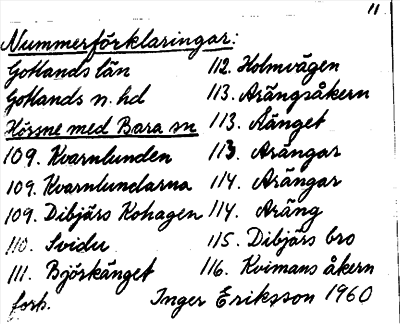 11
Nummerförklaringar:
Gotlands län
Gotlands n. hd
Hörsne med Bara sn
109. Kvarnlunden
109. Kvarnlundarna
109. Dibjärs Kohagen
110. Svidu
111. Björkänget
forts.
112. Holmvägen
113. Arängsåkern
113. Änget
113. Arängar
114. Arängar
114. Aräng
115. Dibjärs bro
116. Kvimans åkern
Inger Eriksson 1960